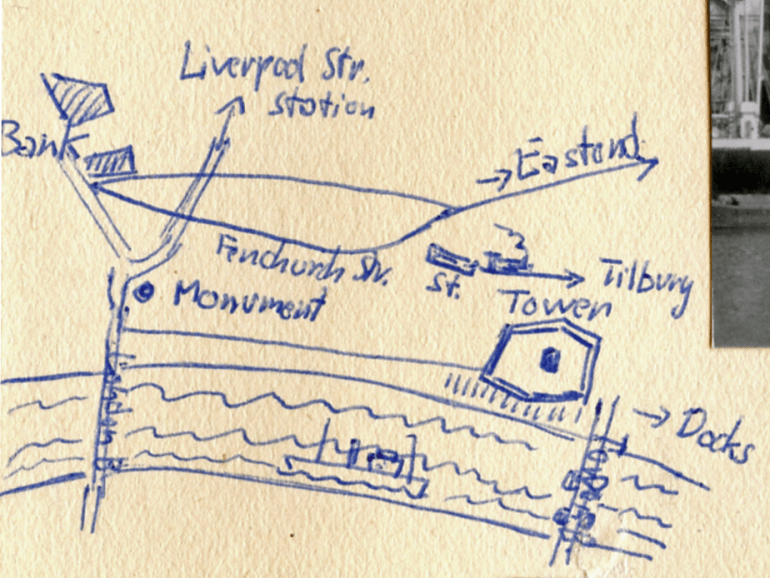 Liverpool Str.
Station
Bank
→ Eastend
Fenchurch Str.
St.
Tilbury
Monument
Tower
→ Docks